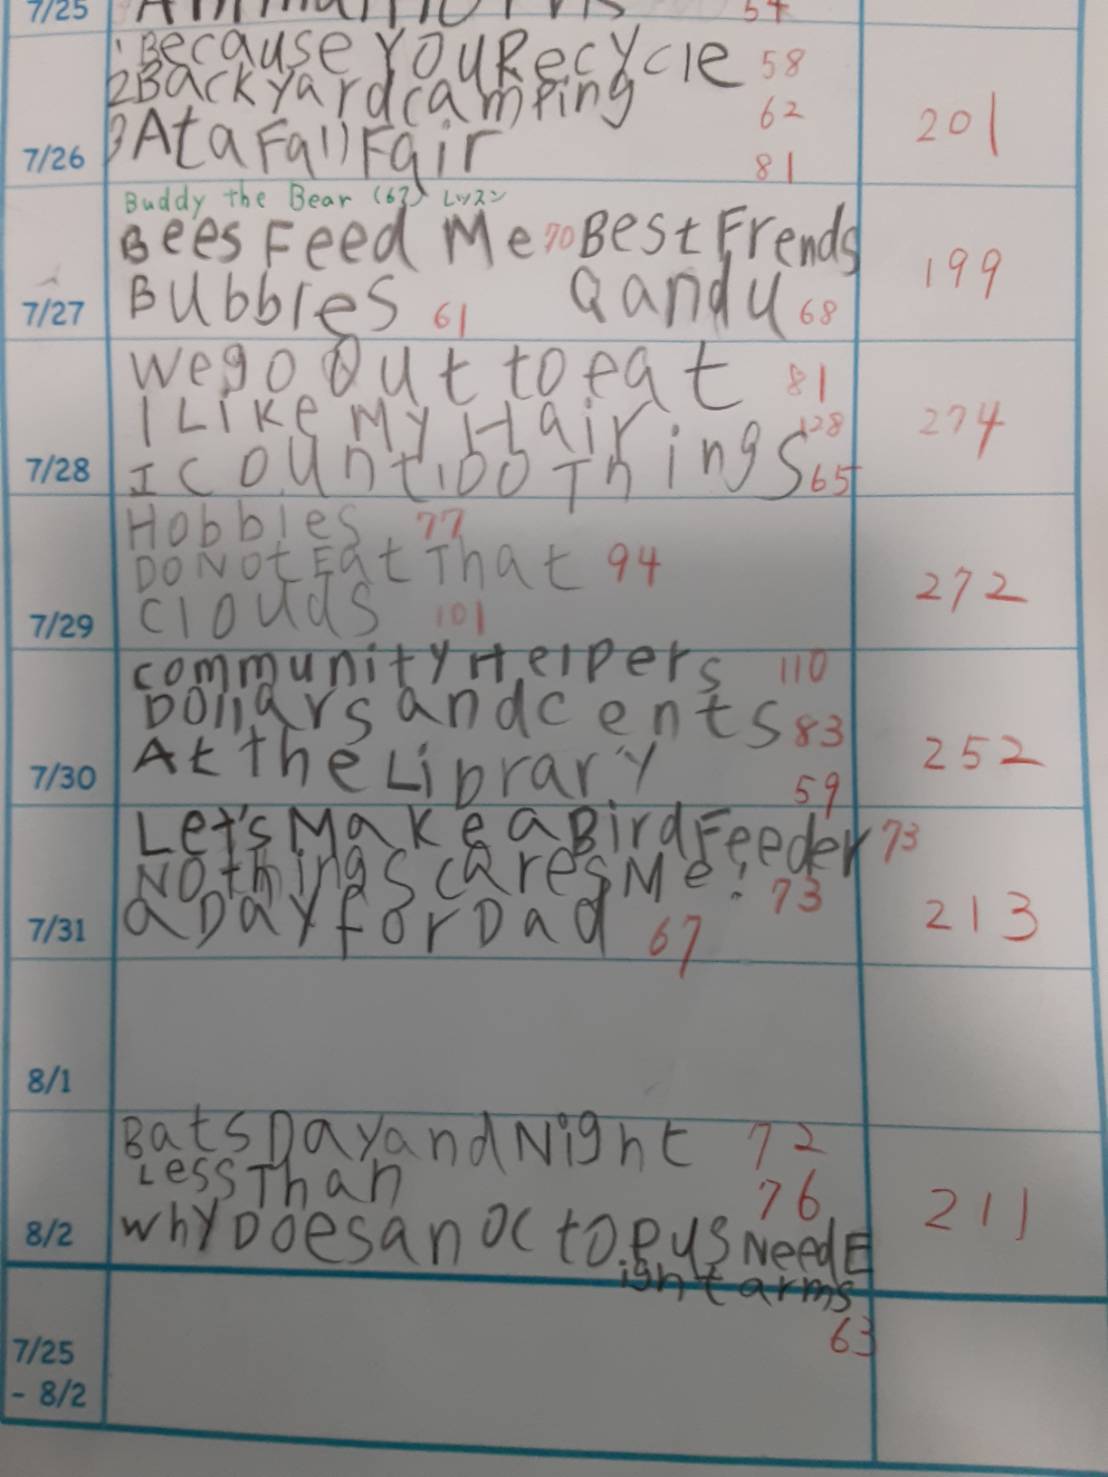 7/25 54
1 Because You Recycle 58
2 Backyard camping 62
7/26 3 At a Fall Fair 81 201
Buddy the Bear (63) レッスン
Bees Feed Me 70 Best Frends
7/27 Bubbles 61 Q and U 68 199
We go Out to eat 81
I Like My Hair 128 274
7/28 I Count 100 Things 65
Hobbies 77
Do Not Eat That 94 272
7/29 clouds 101
community Helpers 110
Dollars and cents 83 252
7/30 At the Library 59
Let's Make a Bird Feeder 73
Nothing Scares Me! 73 213
7/31 a Day for Dad 67
8/1
Bats Day and Night 72
Less Than 76 211
8/2 Why Does an Octopus Need E
ight arms
63
7/25
- 8/2